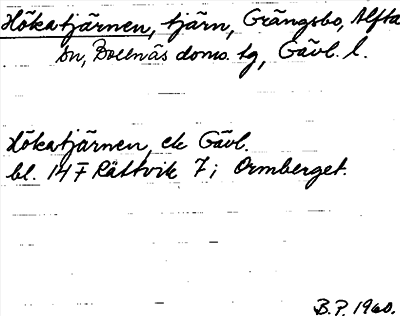 Hökatjärnen, tjärn, Grängsbo, Alfta
sn, Bollnäs doms. tg, Gävl. l.
Hökatjärnen, ek Gävl.
bl. 14 F Rättvik 7 i Ormberget.
B.P. 1960.